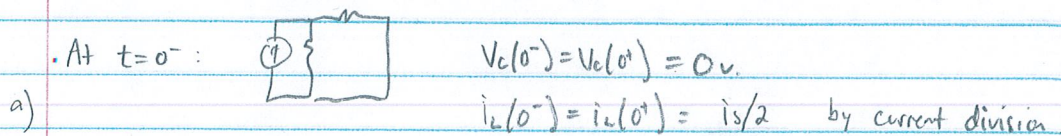 . At t=0⁻ :
Vc(0⁻) = Vc(0⁺) = 0 v.
a)
iL(0⁻) = iL(0⁺) = is/2 by current division